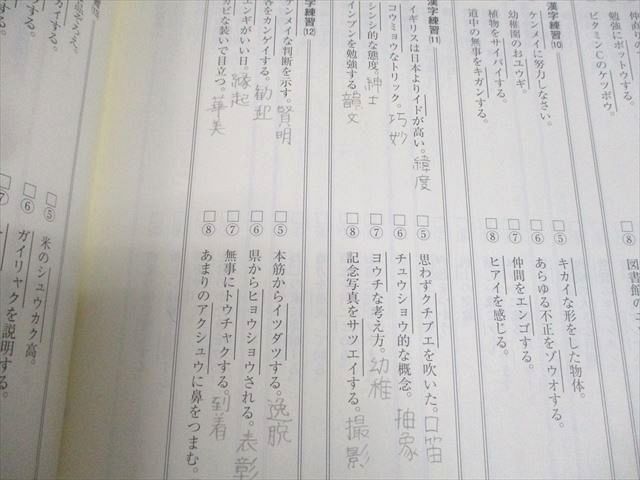 勉強にボットウする。
ビタミンCのケツボウ。
□⑧ 図書館の
漢字練習⑽
ケンメイに努力しなさい。
幼稚園のおユウギ。
植物をサイバイする。
道中の無事をキガンする。
□⑤ キカイな形をした物体。
□⑥ あらゆる不正をゾウオする。
□⑦ 仲間をエンゴする。
□⑧ ヒアイを感じる。
漢字練習⑾
イギリスは日本よりイドが高い。緯度
コウミョウなトリック。巧妙
シンシ的な態度。紳士
インブンを勉強する。韻文
□⑤ 思わずクチブエを吹いた。口笛
□⑥ チュウショウ的な概念。抽象
□⑦ ヨウチな考え方。幼稚
□⑧ 記念写真をサツエイする。撮影
字練習⑿
ケンメイな判断を示す。賢明
客をカンゲイする。
エンギがいい日。縁起
カビな装いで目立つ。華美
□⑤ 本筋からイツダツする。逸脱
□⑥ 県からヒョウショウされる。表彰
□⑦ 無事にトウチャクする。到着
□⑧ あまりのアクシュウに鼻をつまむ。
□⑤ 米のシュウカク高。
□⑥ ガイリャクを説明する。
□⑦